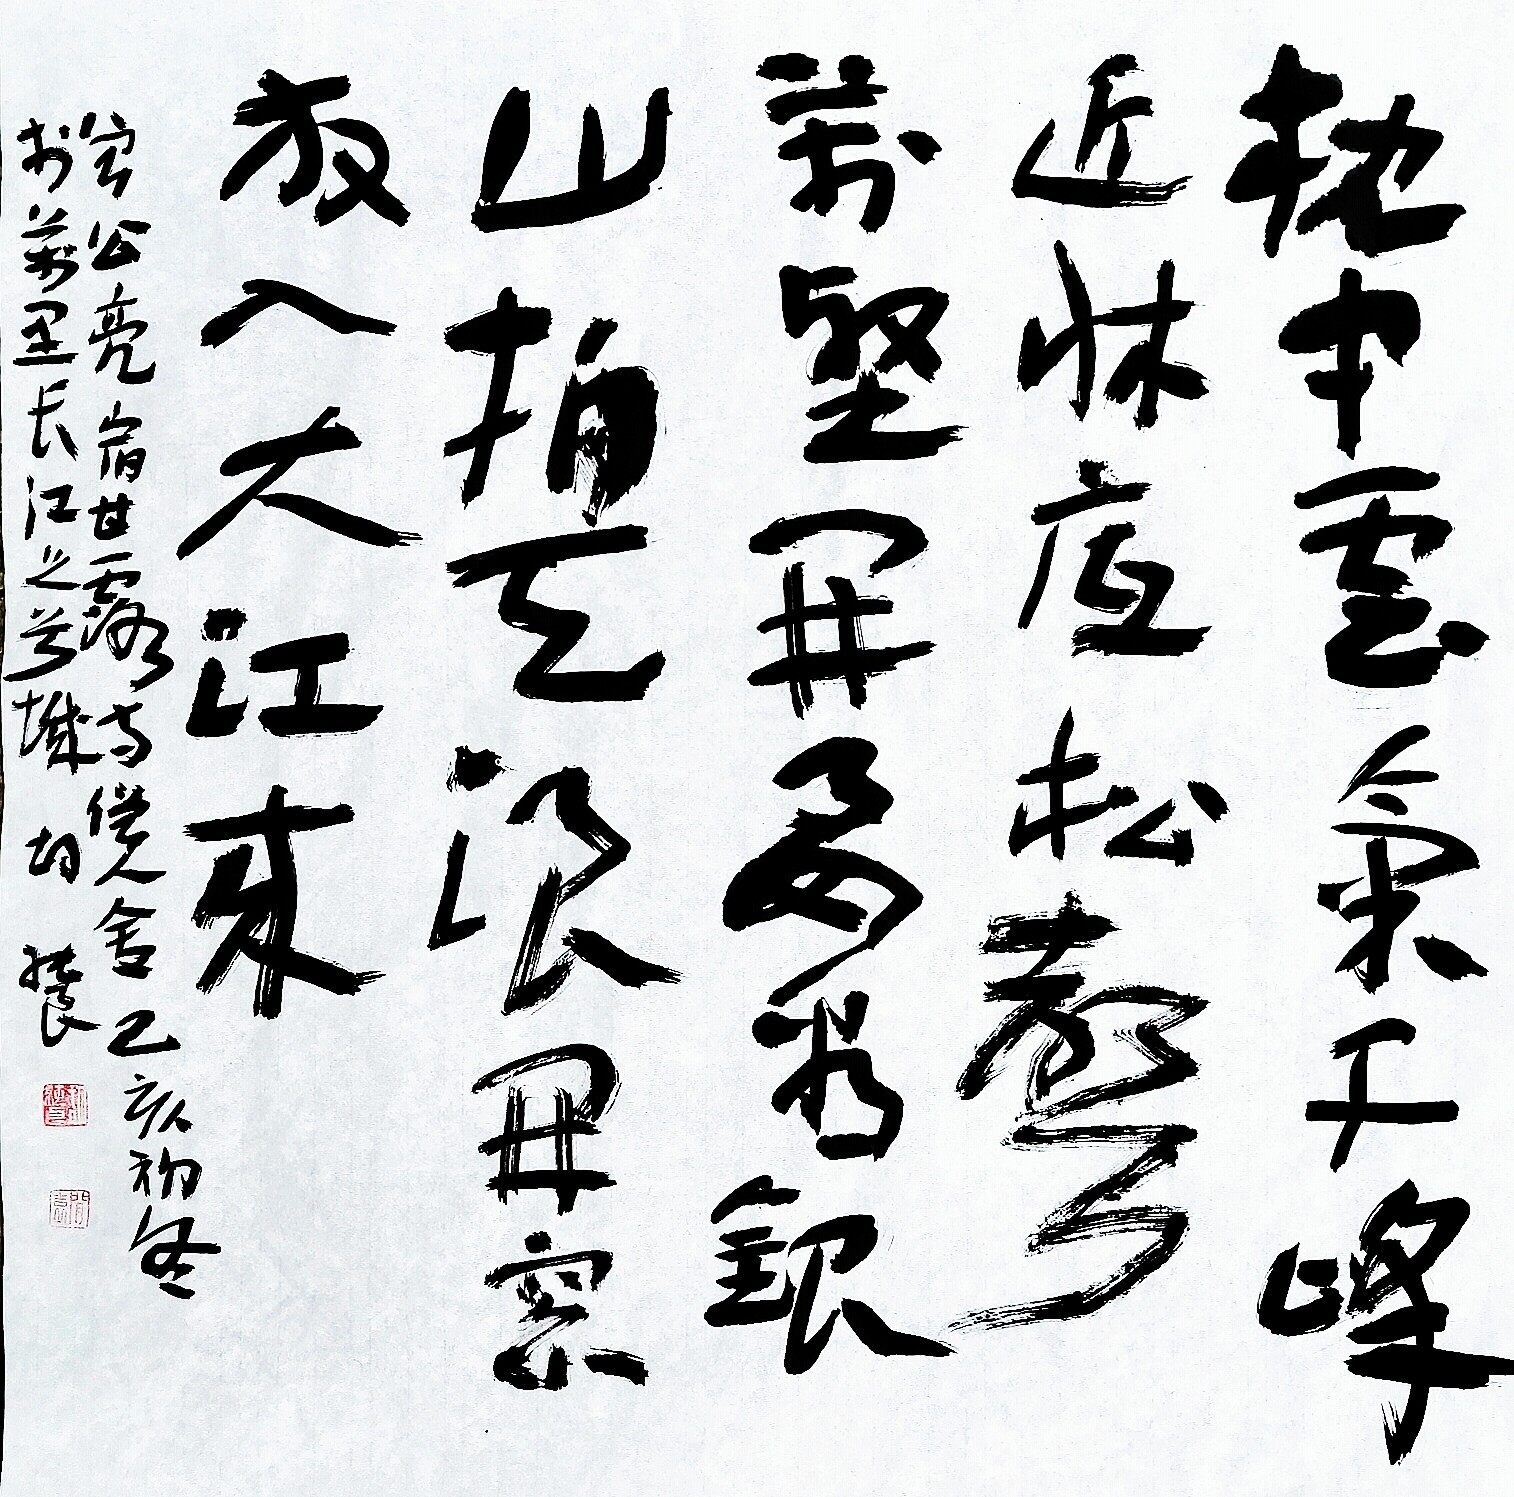 枕中雲氣千峰
近牀底松聲
萬壑開要看銀
山拍天浪開窗
放入大江來
曾公亮宿甘露寺僧舍己亥初冬
於萬里长江之首城